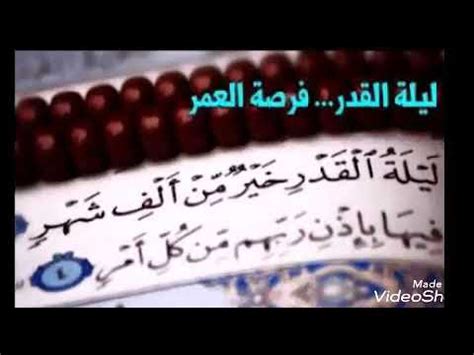 ليلة القدر... فرصة العمر
لَيْلَةُ ٱلْقَدْرِ خَيْرٌ مِّنْ أَلْفِ شَهْرٍ
فِيهَا بِإِذْنِ رَبِّهِم مِّن كُلِّ أَمْرٍ ٤
Made
VideoSh